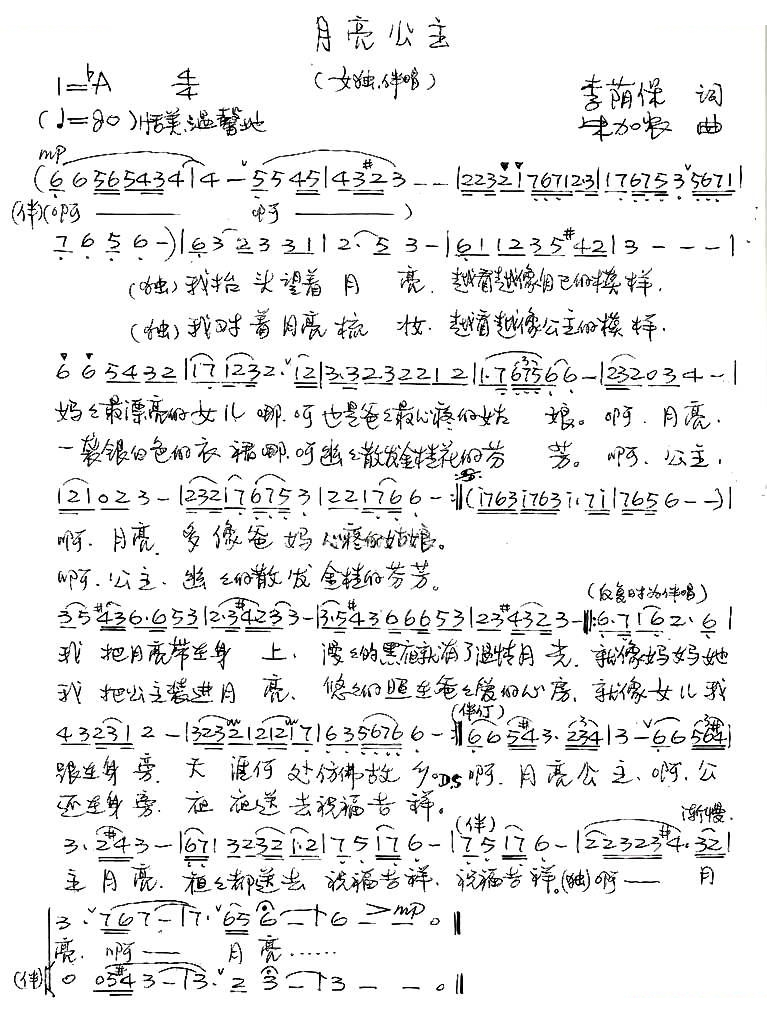 月亮公主
(女独.伴唱)
1=♭A 4/4
李荫保 词
(♩=80)恬美.温馨地
朱加农 曲
mp
(6 6 5 5 6 5 4 3 4 | 4 - 5 5 4 5 | 4 3 #2 3 - - | 2 2 3 2 1 7 6 7 1 2 3 | 1 7 6 7 5 3 5 6 7 1 |
(伴)(啊 啊 )
7 6 5 6 -) | 6 3 2 3 3 1 | 2 · 5 3 - | 6 1 1 2 3 5 #4 2 | 3 - - - |
(独)我抬头望着月亮. 越看越像自已的模样.
(独)我对着月亮梳妆. 越看越像公主的模样.
6 6 5 4 3 2 | 1 7 1 2 3 2 · 1 2 | 3 · 3 2 · 3 2 2 1 2 | 1 · 7 6 7 5 6 6 - | 2 3 2 0 3 4 - |
妈妈最漂亮的女儿哪.呵也是爸爸最心疼的姑娘。啊.月亮.
一袭银白色的衣裙哪.呵幽幽散发金桂花的芬芳。啊.公主.
1 2 1 0 2 3 - | 2 3 2 1 7 6 7 5 3 | 2 2 1 7 6 6 - :‖ (1 7 6 3 1 7 6 3 1 · 7 1 | 7 6 5 6 - -) |
啊.月亮.多像爸妈心疼的姑娘。
啊.公主.幽幽的散发金桂的芬芳。
(反复时为伴唱)
3 5 #4 3 6 · 6 5 3 | 2 · 3 #4 2 3 3 - | 3 · 5 #4 3 6 6 6 5 3 | 2 3 #4 3 2 3 - ‖: 6 · 7 1 6 2 · 6 |
我把月亮带在身上. 漫漫的黑夜就有了温情月光. 就像妈妈她
我把公主装进月亮. 悠悠的照在爸爸爱的心房. 就像女儿我
(伴)
4 3 2 3 1 2 - | 3 2 3 2 1 2 1 2 1 7 | 6 3 5 6 7 6 6 - :‖ 6 6 5 #4 3 · 2 3 4 | 3 - 6 6 5 #5 6 4 |
跟在身旁. 天涯何处仿佛故乡。D.S 啊.月亮公主.啊.公
还在身旁. 夜夜送去祝福吉祥。
渐慢
(伴)
3 · 2 #4 3 - | 6 7 1 3 2 3 2 1 · 2 | 7 5 1 7 6 - | 7 5 1 7 6 - | 2 2 3 2 3 #4 · 3 2 |
主月亮. 祖祖都送去祝福吉祥. 祝福吉祥。(独)啊 月
3 · 7 6 7 - | 7 · 6 5 6 - | 6 - > mp 0 ‖
亮. 啊 月亮……
(伴) 0 0 3 #4 3 - | 3 · 2 3 - | 3 - - 0 ‖